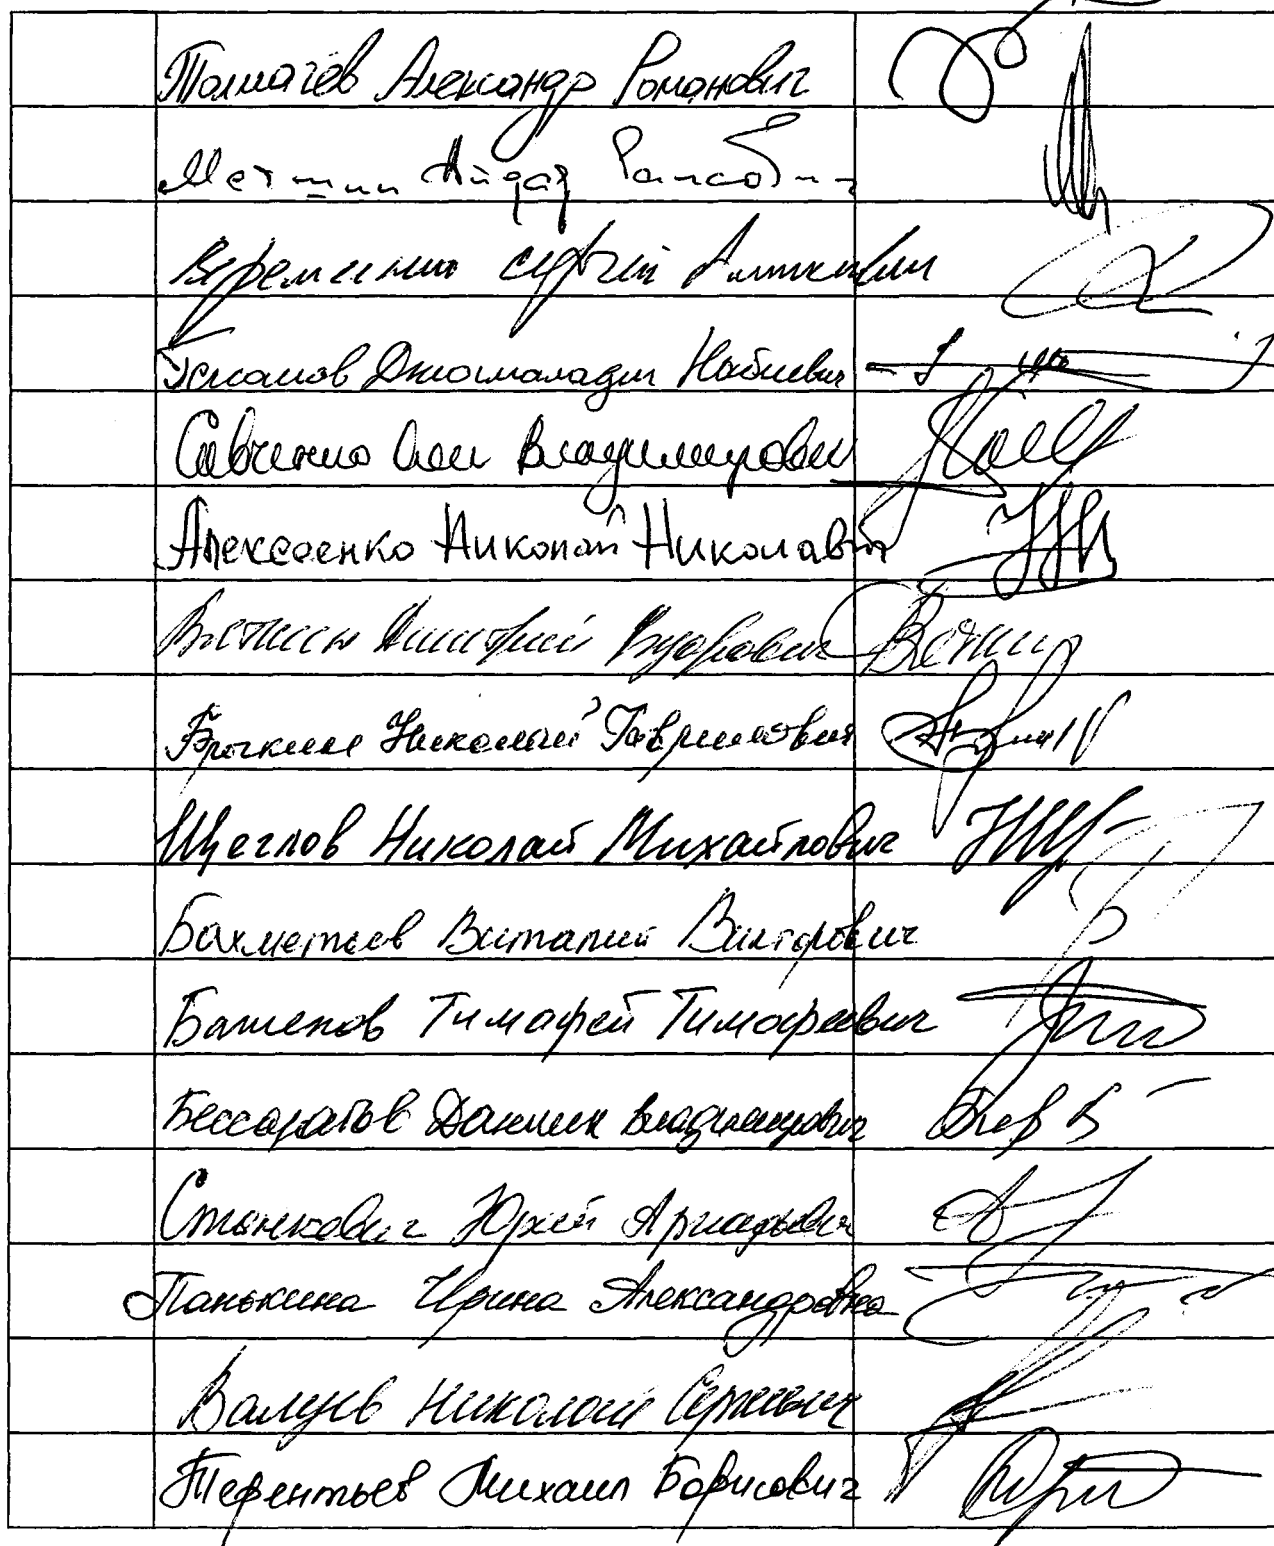 Толмачёв Александр Романович
Метшин Айдар Раисович
Веремеенко Сергей Алексеевич
Усманов Джамаладин Набиевич
Савченко Олег Владимирович
Алексеенко Николай Николавич
Вяткин Дмитрий Федорович
Брыкин Николай Гаврилович
Щеглов Николай Михайлович
Бахметьев Виталий Викторович
Баженов Тимафей Тимофеевич
Бессарабов Даниил Владимирович
Станкевич Юрий Аркадьевич
Панькина Ирина Александровна
Валуев Николай Сергеевич
Терентьев Михаил Борисович